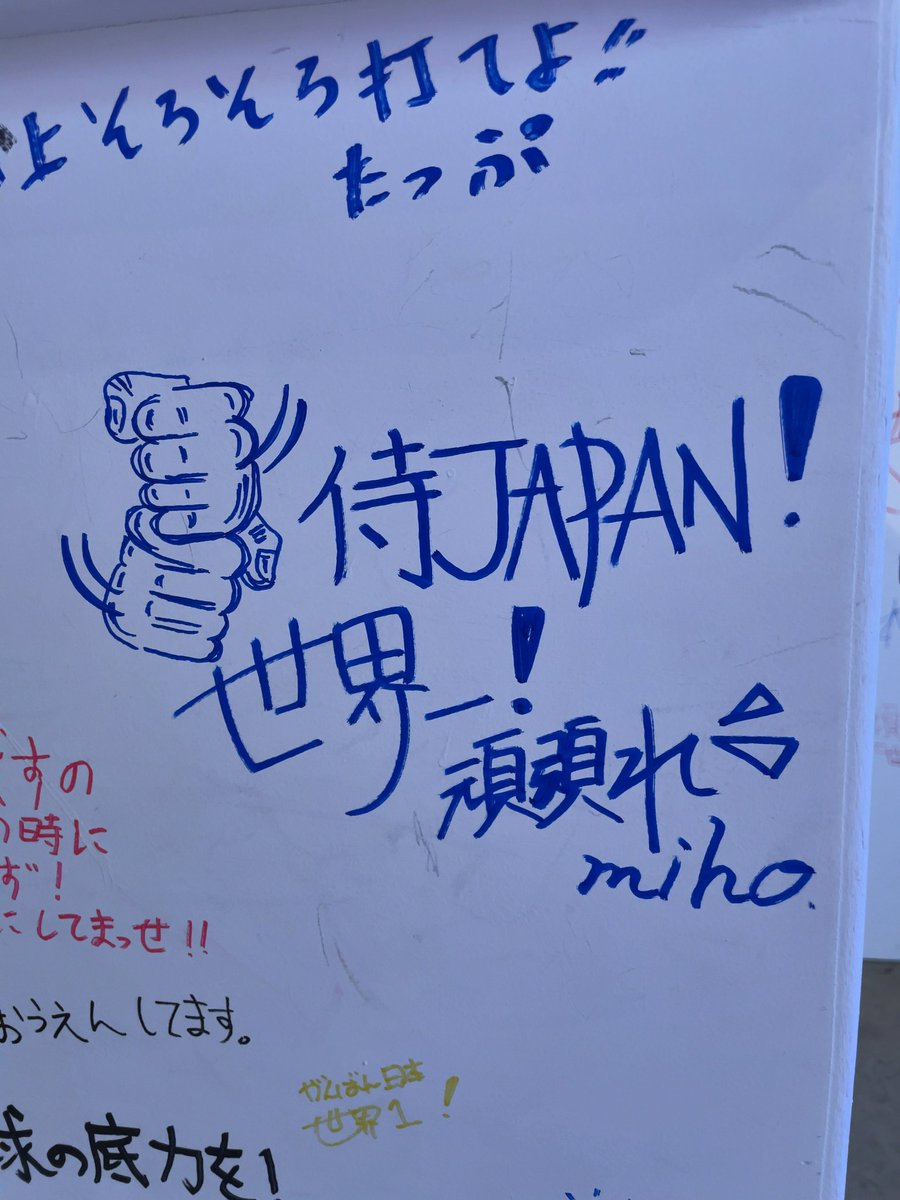 上そろそろ打てよ!!
たっぷ
侍JAPAN!
世界一!
頑張れ
miho.
すの
の時に
ず!
にしてまっせ!!
おうえんしてます。
がんばれ日本
世界1!
球の底力を!